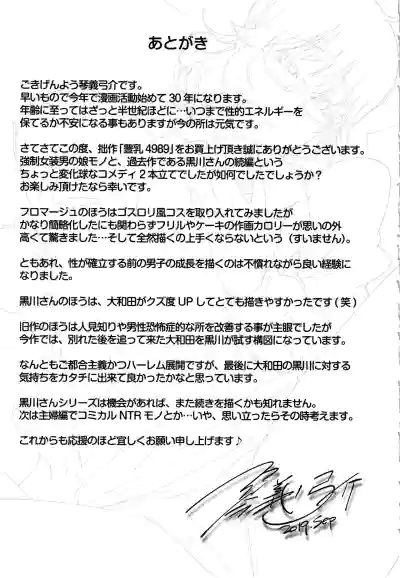 あとがき
ごきげんよう琴義弓介です。
早いもので今年で漫画活動始めて30年になります。
年齢に至ってはざっと半世紀ほどに…いつまで性的エネルギーを
保てるか不安になる事もありますが今の所は元気です。
さてさてこの度、拙作「豊乳4989」をお買上げ頂き誠にありがとうございます。
強制女装男の娘モノと、過去作である黒川さんの続編という
ちょっと変化球なコメディ2本立てでしたが如何でしたでしょうか?
お楽しみ頂けたなら幸いです。
フロマージュのほうはゴスロリ風コスを取り入れてみましたが
かなり簡略化したにも関わらずフリルやケーキの作画カロリーが思いの外
高くて驚きました…そして全然描の上手くならないという(すいません)。
ともあれ、性が確立する前の男子の成長を描くのは不慣れながら良い経験に
なりました。
黒川さんのほうは、大和田がクズ度UPしてとても描きやすかったです(笑)
旧作のほうは人見知りや男性恐怖症的な所を改善する事が主眼でしたが
今作では、別れた後を追って来た大和田を黒川が試す構図になっています。
なんともご都合主義かつハーレム展開ですが、最後に大和田の黒川に対する
気持ちをカタチに出来て良かったかなと思っています。
黒川さんシリーズは機会があれば、また続きを描くかも知れません。
次は主婦編でコミカルNTRモノとか…いや、思い立ったらその時考えます。
これからも応援のほど宜しくお願い申し上げます♪
琴義弓介
2019.Sep